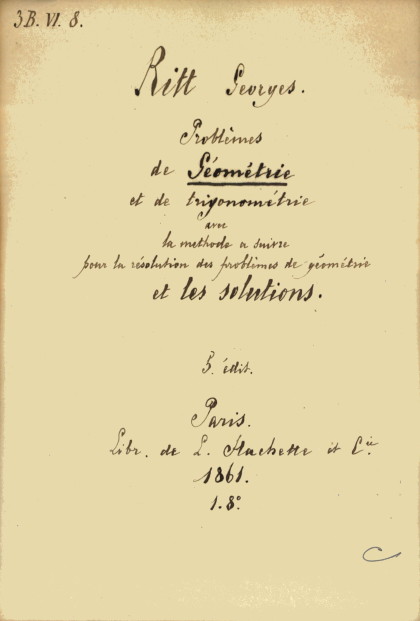 3B. VI. 8.
Ritt Georges.
Problèmes
de Géométrie
et de trigonométrie
avec
la methode a suivre
pour la résolution des problèmes de géométrie
et les solutions.
5. édit.
Paris.
Libr. de L. Hachette et Cie.
1861.
1. 8°